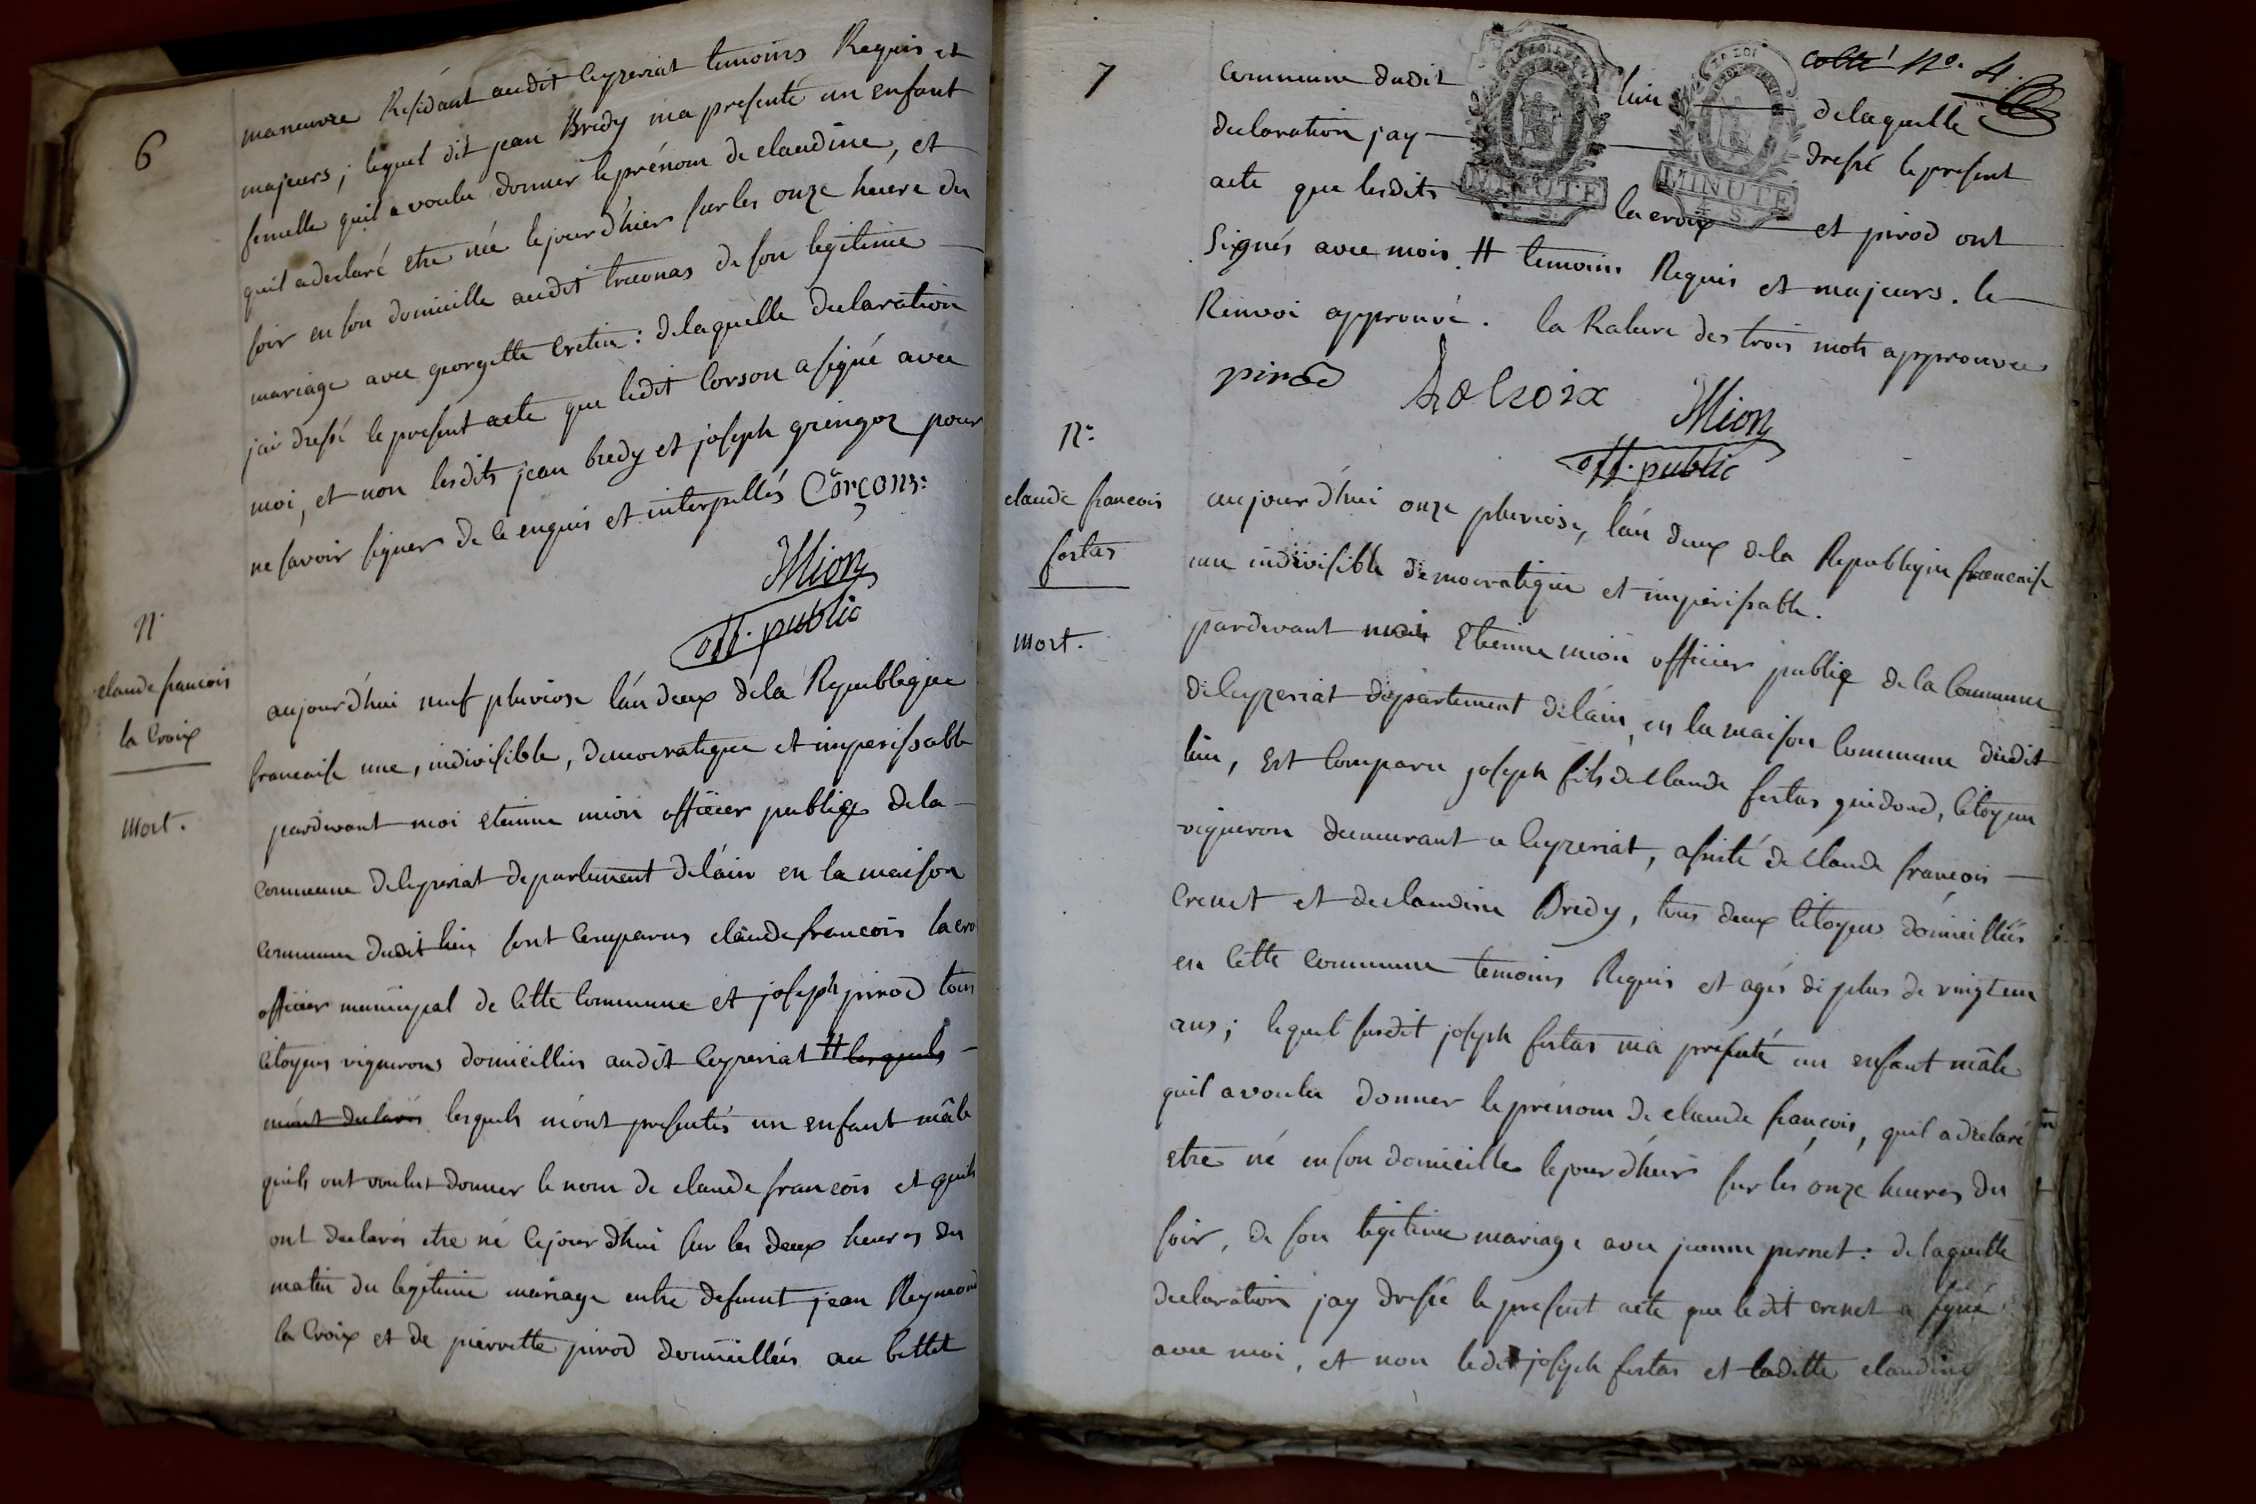 6
manœuvre Residant audit Ceyzeriat temoins Requis et
majeurs ; lequel dit jean Bredy ma presenté un enfant
femelle quil a voulu donner le prénom de claudine, et
quil a declaré etre née le jour d'hier sur les onze heure du
soir en son domicille audit treconas de son legitime
mariage avec georgette cretin : delaquelle declaration
jai dressé le present acte que ledit Corson a signé avec
moi, et non lesdits jean bredy et joseph gringoz pour
ne savoir signer de ce enquis et interpellés Corçon :
Mion
off. public
N.
claude francois
la Croix
Mort.
aujourd'hui neuf pluviose l'an deux de la Republique
francaise une, indivisible, democratique et imperissable
pardevant moi etienne mion officier publiqe de la
commune de Ceyzeriat departement de l'ain en la maison
commune dudit lieu sont Comparus claude francois la cro
officier municipal de Cette Commune et joseph pirod tous
citoyens vignerons domicillies audit Ceyzeriat # lesquels
m'ont declarés lesquels m'ont presentés un enfant mâle
quils ont voulut donner le nom de claude francois et quils
ont declarés etre né Cejourd'hui sur les deux heures du
matin du legitime mariage entre defunt jean Reymond
la Croix et de pierrette pirod domicillées au bettet
7
Cotté N°. 4.
MINUTE
4 S.
MINUTE
4 S.
commune dudit lieu delaquelle
declaration jay dressé le present
acte que lesdits lacroix et pirod ont
signés avec mois. # temoins Requis et majeurs. le
Renvoi approuvé. la Rature des trois mots approuvee
pirod Lacroix Mion
off. public
N°
claude francois
fertas
Mort.
aujourd'hui onze pluviose, l'an deux de la Republique francaise
une indivisible democratique et imperissable.
pardevant moi Etienne mion officier publiq de la Commune
de Ceyzeriat département de l'ain, en la maison Commune dudit
lieu, Est Comparu joseph fils de Claude fertas guidoud, Citoyen
vigneron demeurant a Ceyzeriat, assisté de Claude françois
Crenet et de claudine Bredy, tous deux Citoyens domicilliés
en Cette Commune temoins Requis et agés de plus de vingt un
ans ; lequel susdit joseph fertas ma présenté un enfant mâle
quil a voulu donner le prénom de claude françois, quil a declaré
etre né en son domicille le jour d'hier sur les onze heures du
soir, de son legitime mariage avec jeanne pernet : delaquelle
declaration jay dressé le present acte que ledit crenet a signé
avec moi, et non ledit joseph fertas et laditte claudine